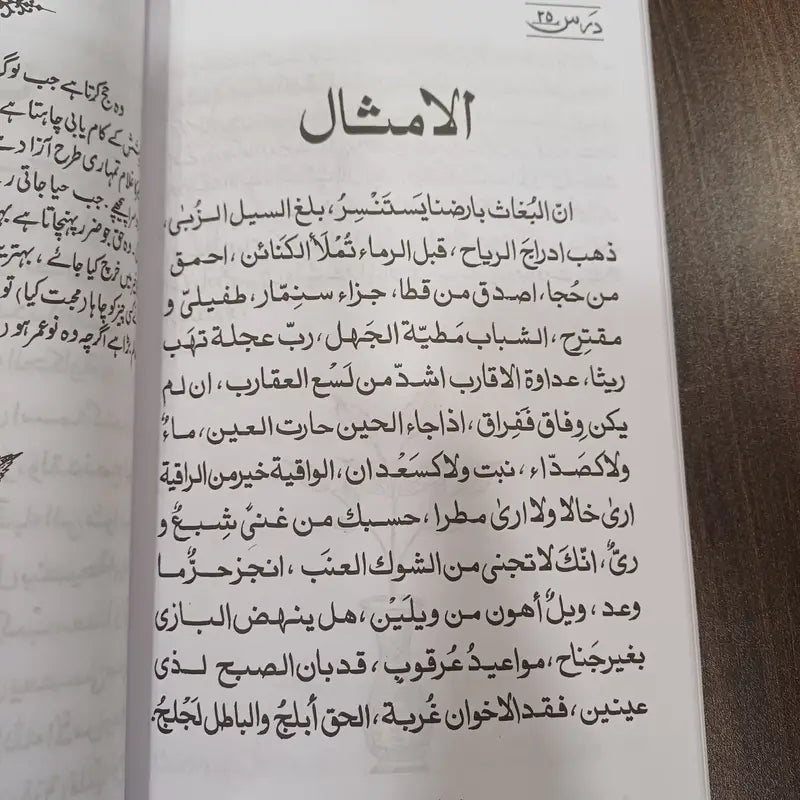 درس ٢٥
الامثال
انّ البُغاث بارضنا يَستَنْسِرُ، بلغ السيل الزُبیٰ،
ذهب ادراجَ الرياح، قبل الرماء تُمْلَأ الكنائن، احمق
من حُجا، اصدق من قطا، جزاء سنِمّار، طفيلیّ و
مقترِح، الشباب مَطيّة الجَهل، ربّ عجلة تهَب
ريثا، عداوة الاقارب اشدّ من لَسْع العقارب، ان لم
يكن وِفاق فَفِراق، اذا جاء الحين حارت العين، ماءٌ
ولا كصَدّاء، نبت ولا كسَعْدان، الواقية خير من الراقية
اریٰ خالا ولا اریٰ مطرا، حسبك من غنیًّ شِبعٌ و
ریٌّ، انّكَ لا تجنی من الشوك العنَب، انجَز حزٌّ ما
وعد، ويلٌ أهون من ويلَيْن، هل ينهض البازی
بغير جَناح، مواعيدُ عُرقوبٍ، قد بان الصبح لذی
عينين، فقد الاخوان غُربة، الحق أبلجُ والباطل لَجْلجُ.
وہ حج کرتا ہے جب لوگ
کے کام یابی چاہتا ہے
غلام تمہاری طرح آزاد
جب حیا جاتی ر
جو ضرر پہنچاتا ہے
میں خرچ کیا جائے، بہترین
چیز کو چاہا (محبت کیا) تو
ہے اگرچہ وہ نو عمر ہو